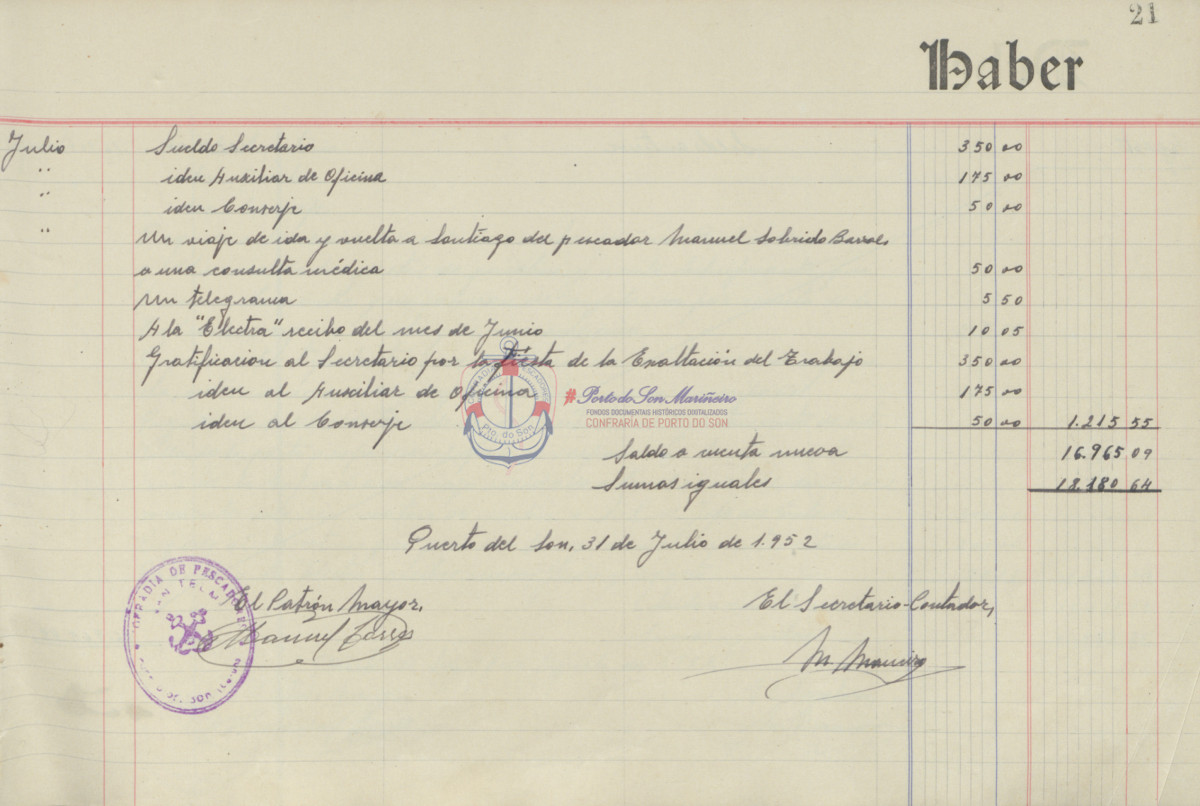 21
Haber
Julio Sueldo Secretario 350 00
" idem Auxiliar de Oficina 175 00
" idem Conserje 50 00
" Un viaje de ida y vuelta a Santiago del pescador Manuel Sobrido Barral,
a una consulta médica 50 00
Un telegrama 5 50
A la "Electra" recibo del mes de Junio 10 05
Gratificacion al Secretario por la fiesta de la Exaltación del Trabajo 350 00
idem al Auxiliar de Oficina 175 00
idem al Conserje 50 00 1.215 55
Saldo a cuenta nueva 16.965 09
Sumas iguales 18.180 64
Puerto del Son, 31 de Julio de 1.952
El Patrón Mayor,
El Secretario-Contador,
Manuel
M.
COFRADIA DE PESCADORES
SAN TELMO
DEL SON
Pto. do Son
#PortodoSonMariñeiro
FONDOS DOCUMENTAIS HISTÓRICOS DIXITALIZADOS
CONFRARIA DE PORTO DO SON